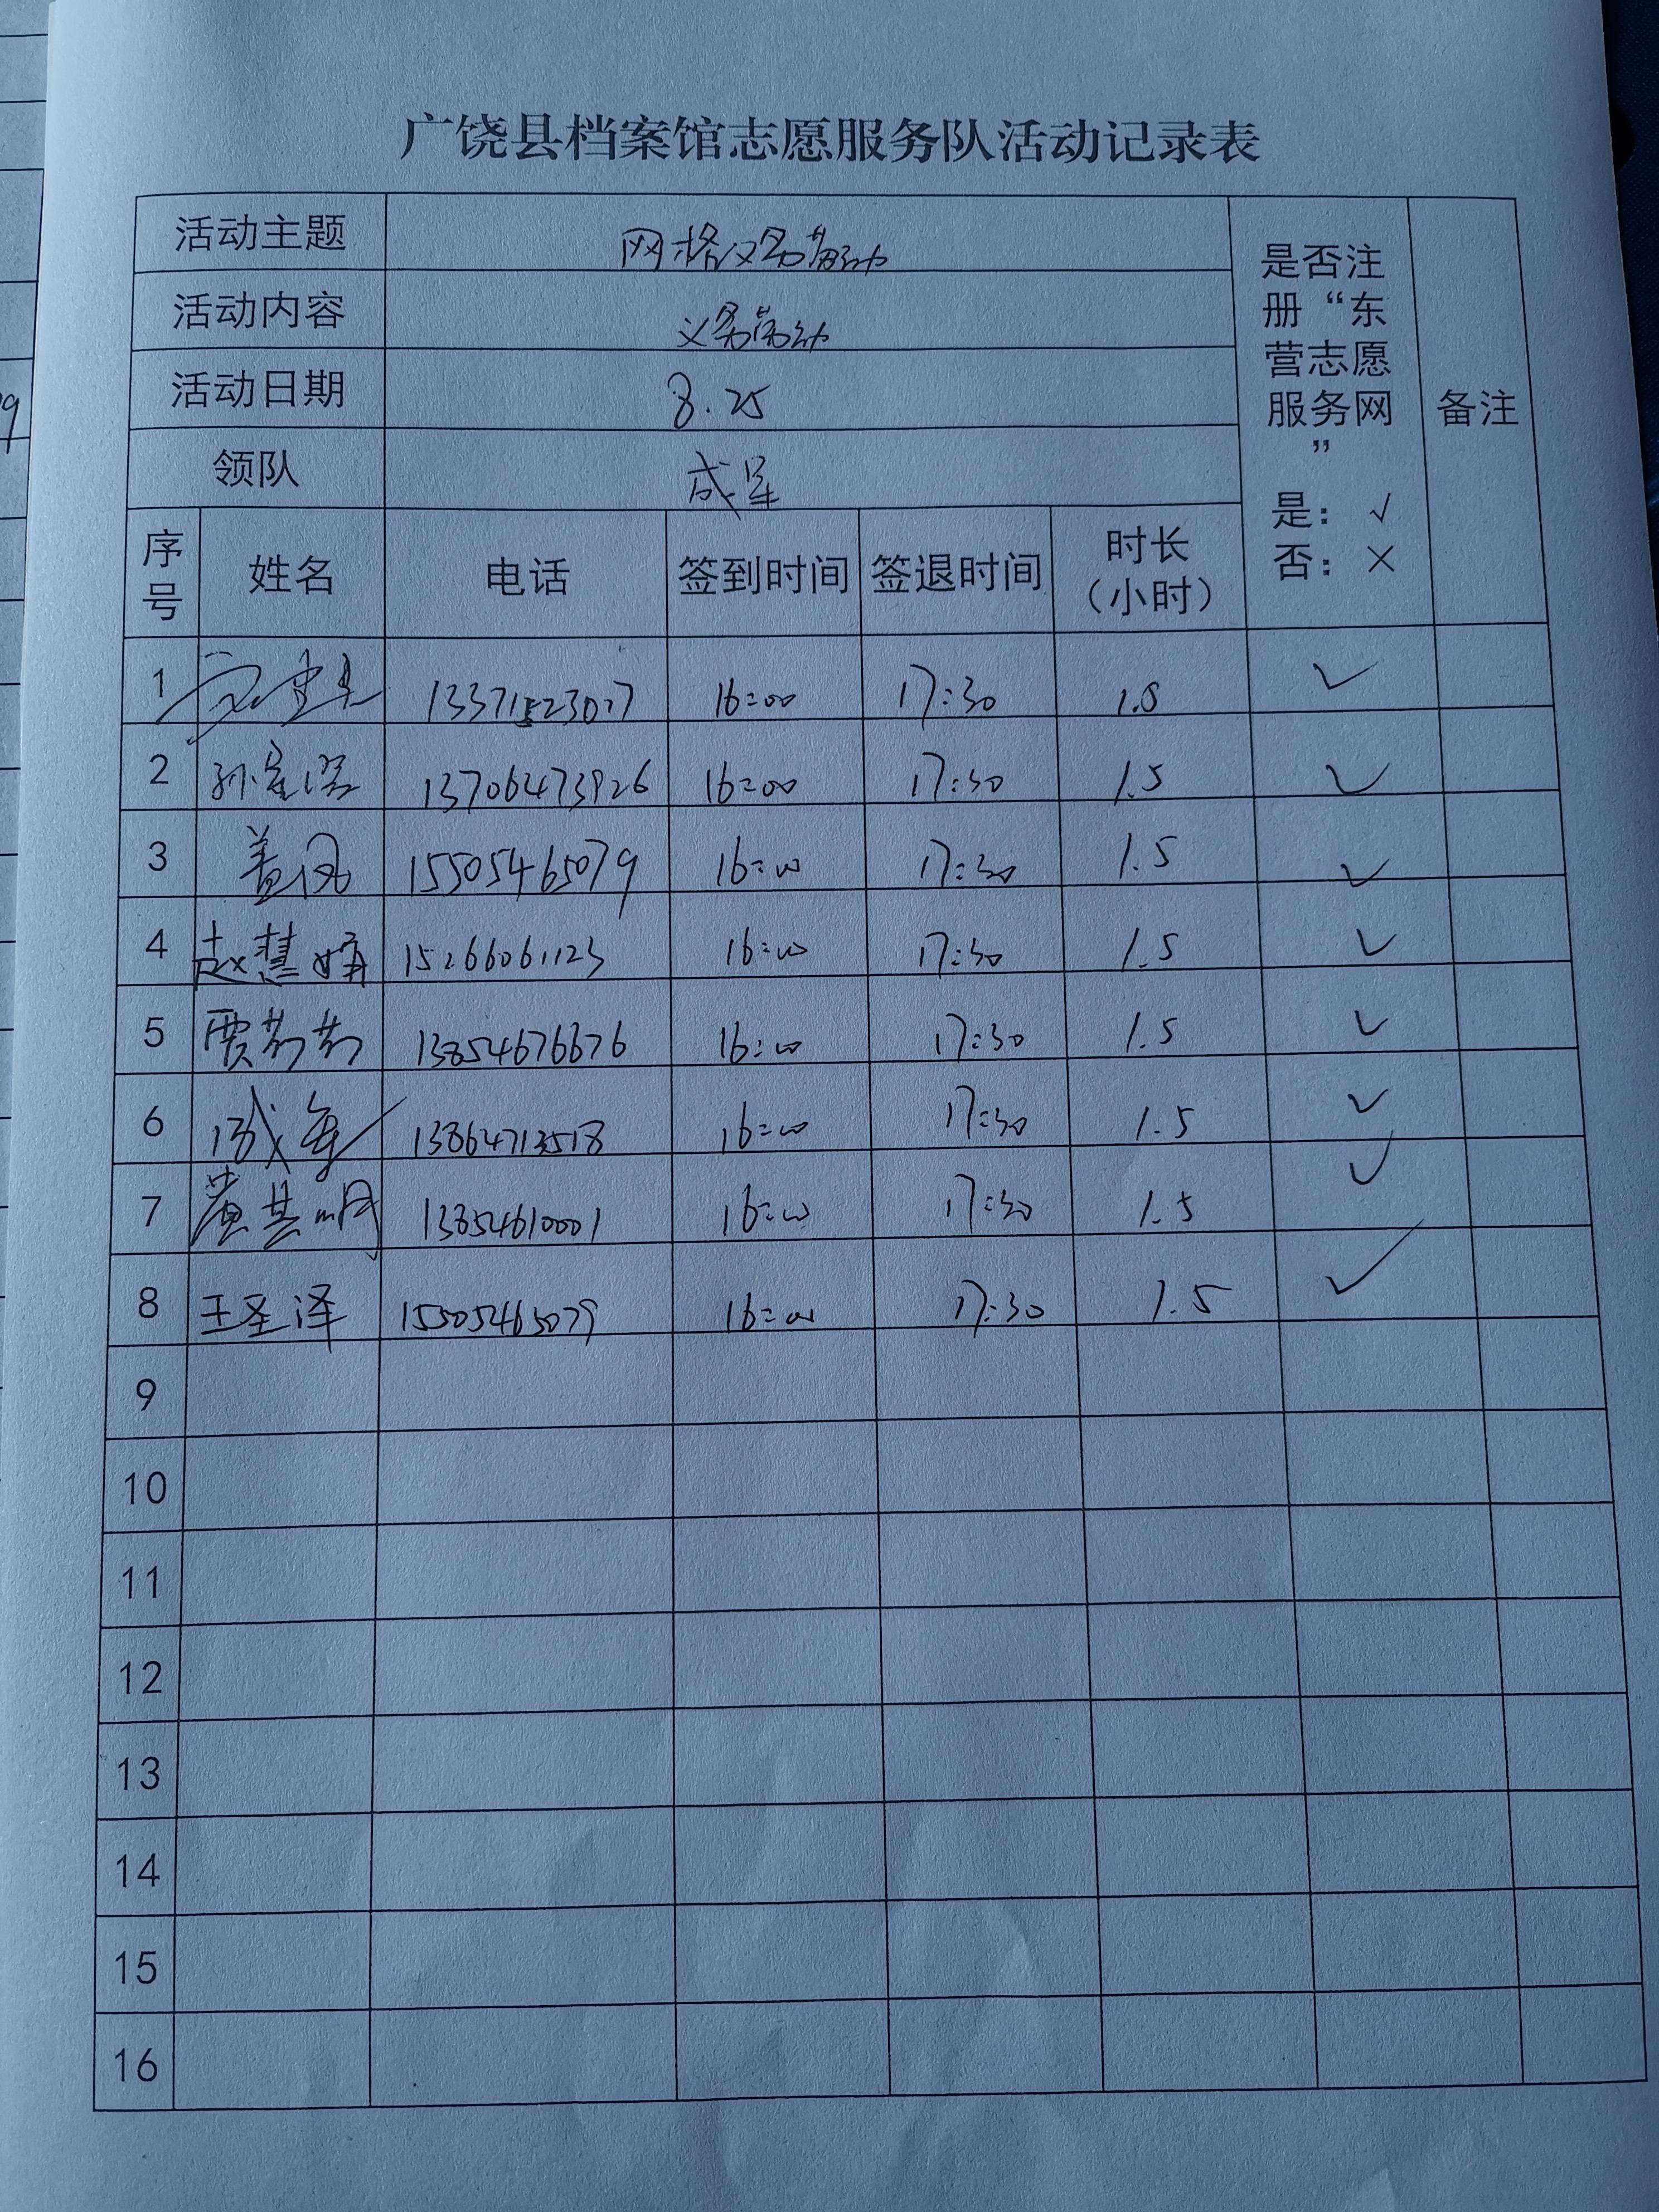 广饶县档案馆志愿服务队活动记录表
活动主题 网格义务劳动
活动内容 义务劳动
活动日期 8.25
领队
是否注
册“东
营志愿
服务网
”
是：√
否：×
备注
序号 姓名 电话 签到时间 签退时间 时长（小时）
1 16:00 17:30 ✓
2 13706473926 16:00 17:30 1.5 ✓
3 盖凤 15505465079 16:00 17:30 1.5 ✓
4 赵慧娟 15266061123 16:00 17:30 1.5 ✓
5 贾芳芳 13854676676 16:00 17:30 1.5 ✓
6 13864713518 16:00 17:30 1.5 ✓
7 黄其明 13854610001 16:00 17:30 1.5 ✓
8 王圣泽 15505465079 16:00 17:30 1.5 ✓
9
10
11
12
13
14
15
16